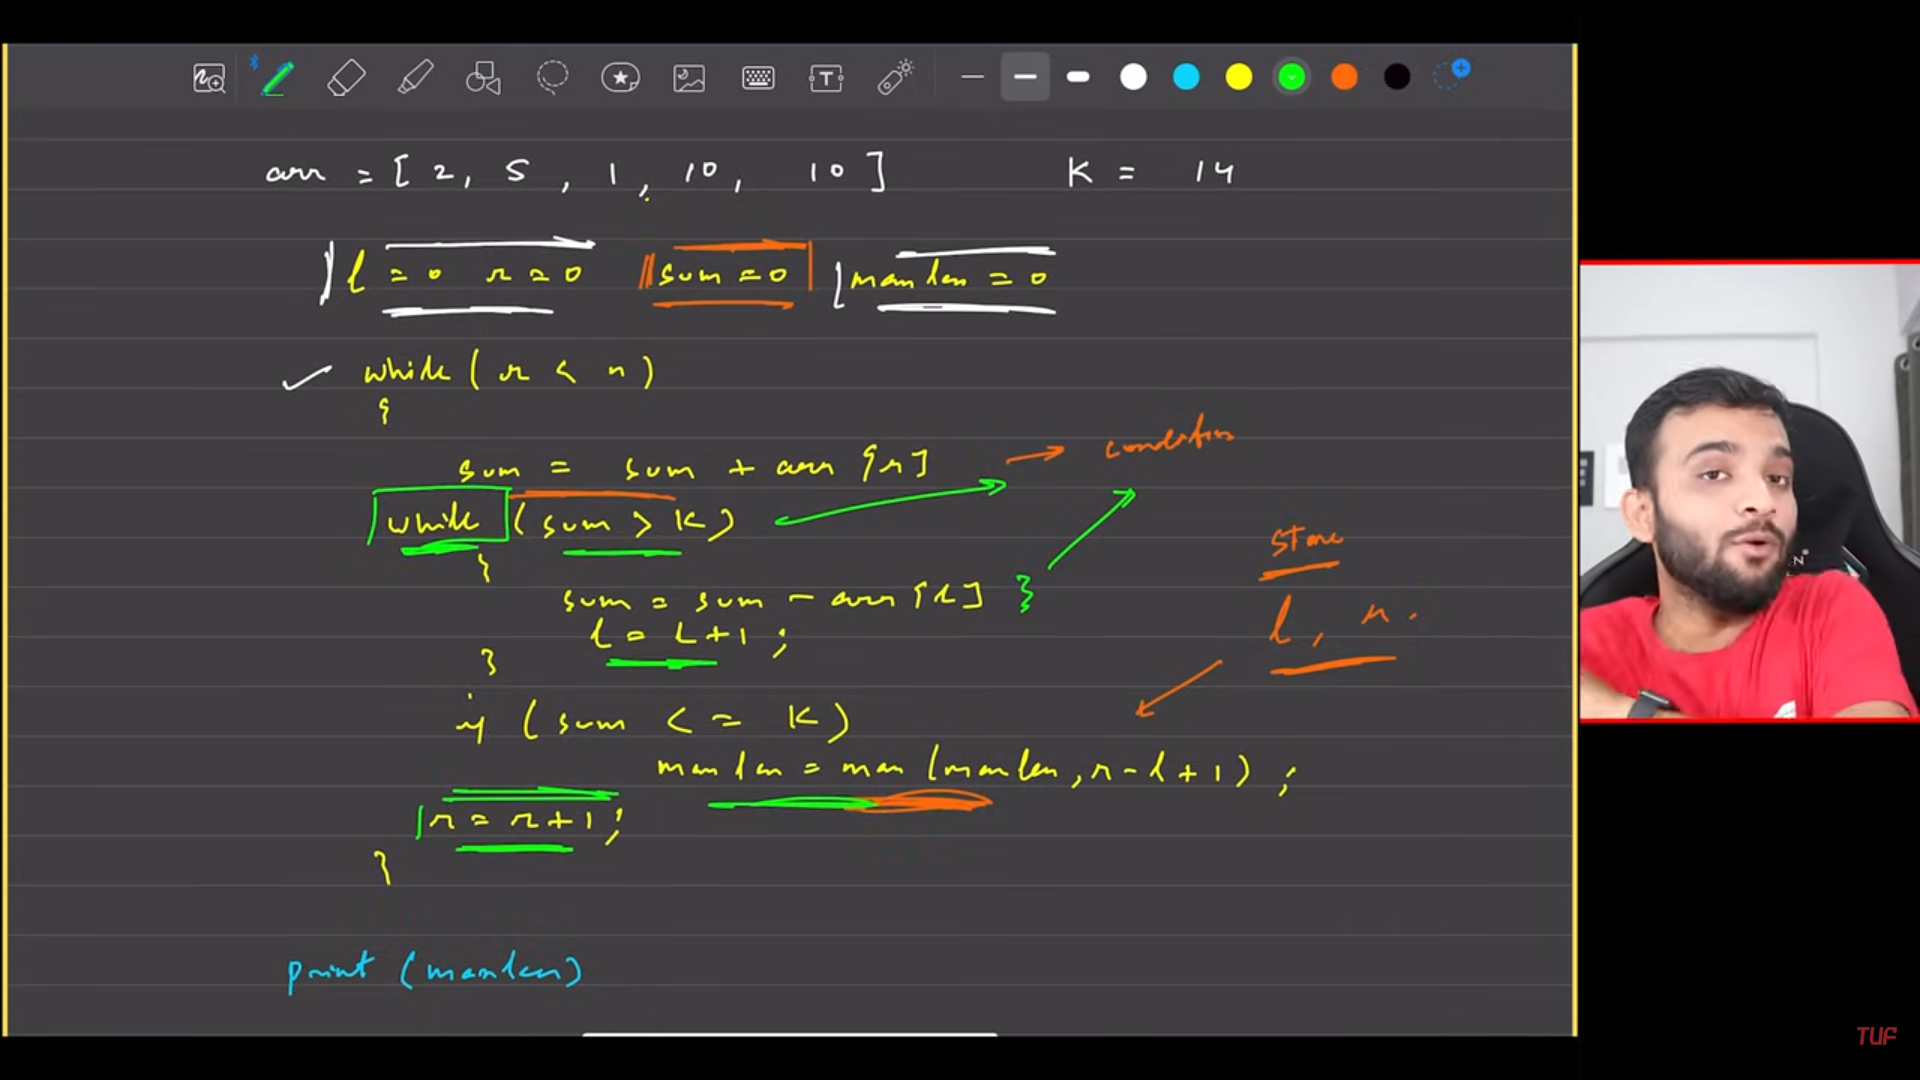 arr = [ 2, 5, 1, 10, 10 ] K = 14
l = 0 r = 0 sum = 0 maxlen = 0
while ( r < n )
{
sum = sum + arr[r] → condition
while ( sum > K )
{
store
sum = sum - arr[l] }
l, r.
l = l + 1 ;
}
if ( sum <= K )
maxlen = max (maxlen, r - l + 1) ;
r = r + 1 ;
}
print (maxlen)
T
EN
TUF